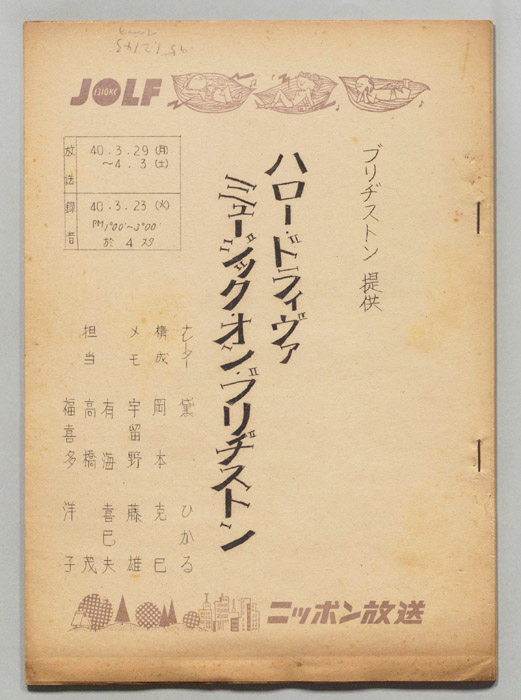 JOLF
1310KC
ブリヂストン 提供
ハロー・ドライヴァ
ミュージック・オン・ブリヂストン
放送 40.3.29(月)
～4.3(土)
録音 40.3.23(火)
PM 1°00′～3°00′
於 4スタ
ナレーター 黛 ひかる
構成 岡本 克巳
メモ 宇留野 藤雄
有海 喜巳夫
担当 高橋 茂
福喜多 洋子
ニッポン放送